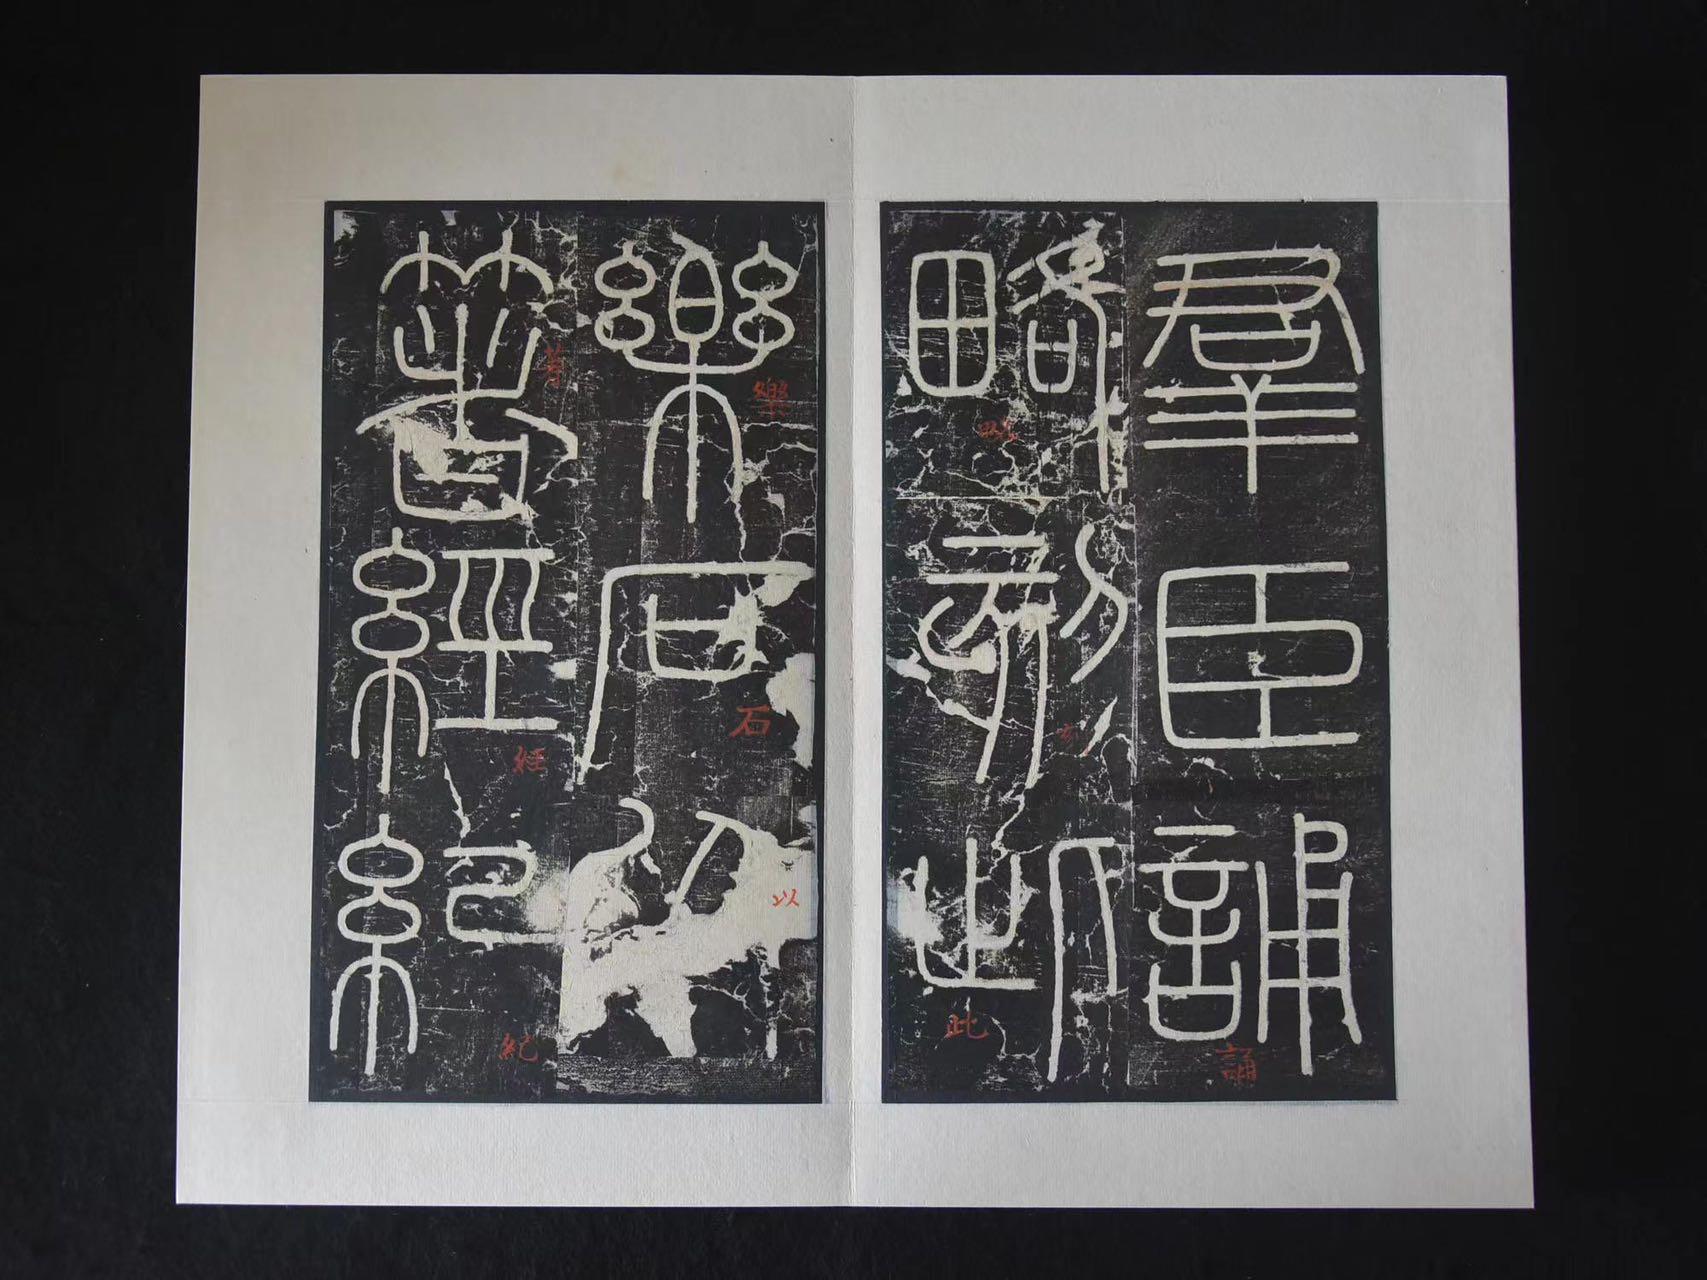 羣臣誦
略刻此
樂石以
箸經紀
誦
略
刻
此
樂
石
以
著
經
紀